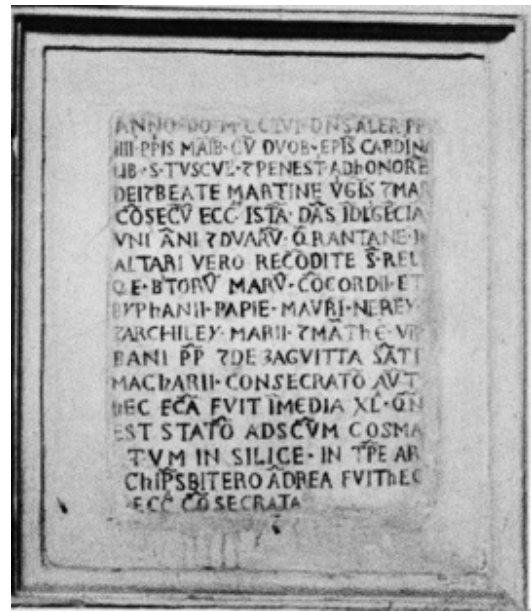 ANNO DO M CCLVI DNS ALEX PP
IIII PPIS MAIB CV̄ DVOB EPIS CARDINA
LIB S TVSCVL ⁊ PENEST AD hONORĒ
DEI ⁊ BEATE MARTINE VGIS ⁊ MAR
CŌSECV̄ ECC ISTA DĀS IDLGECIA
VNI ĀNI ⁊ DVARV̄ QRANTANE
ALTARI VERO RECODITE S̄ REL
Q E BTORV̄ MARV̄ CŌCORDII ET
EYPhANII PAPIE MAVRI NEREY
⁊ARChILEY MARII ⁊ MAThE VR
BANI P̄P̄ ⁊ DE ƷAGVITTA SĀTI
MAChARII CONSECRATŌ AV̄T
hEC ECĀ FVIT ĪMEDIA XL QN̄
EST STATŌ AD SC̄VM COSMA
TVM IN SILICE IN TP̄E AR
ChIPSBITERO ĀDREA FVIT hEC
ECC CŌSECRATA